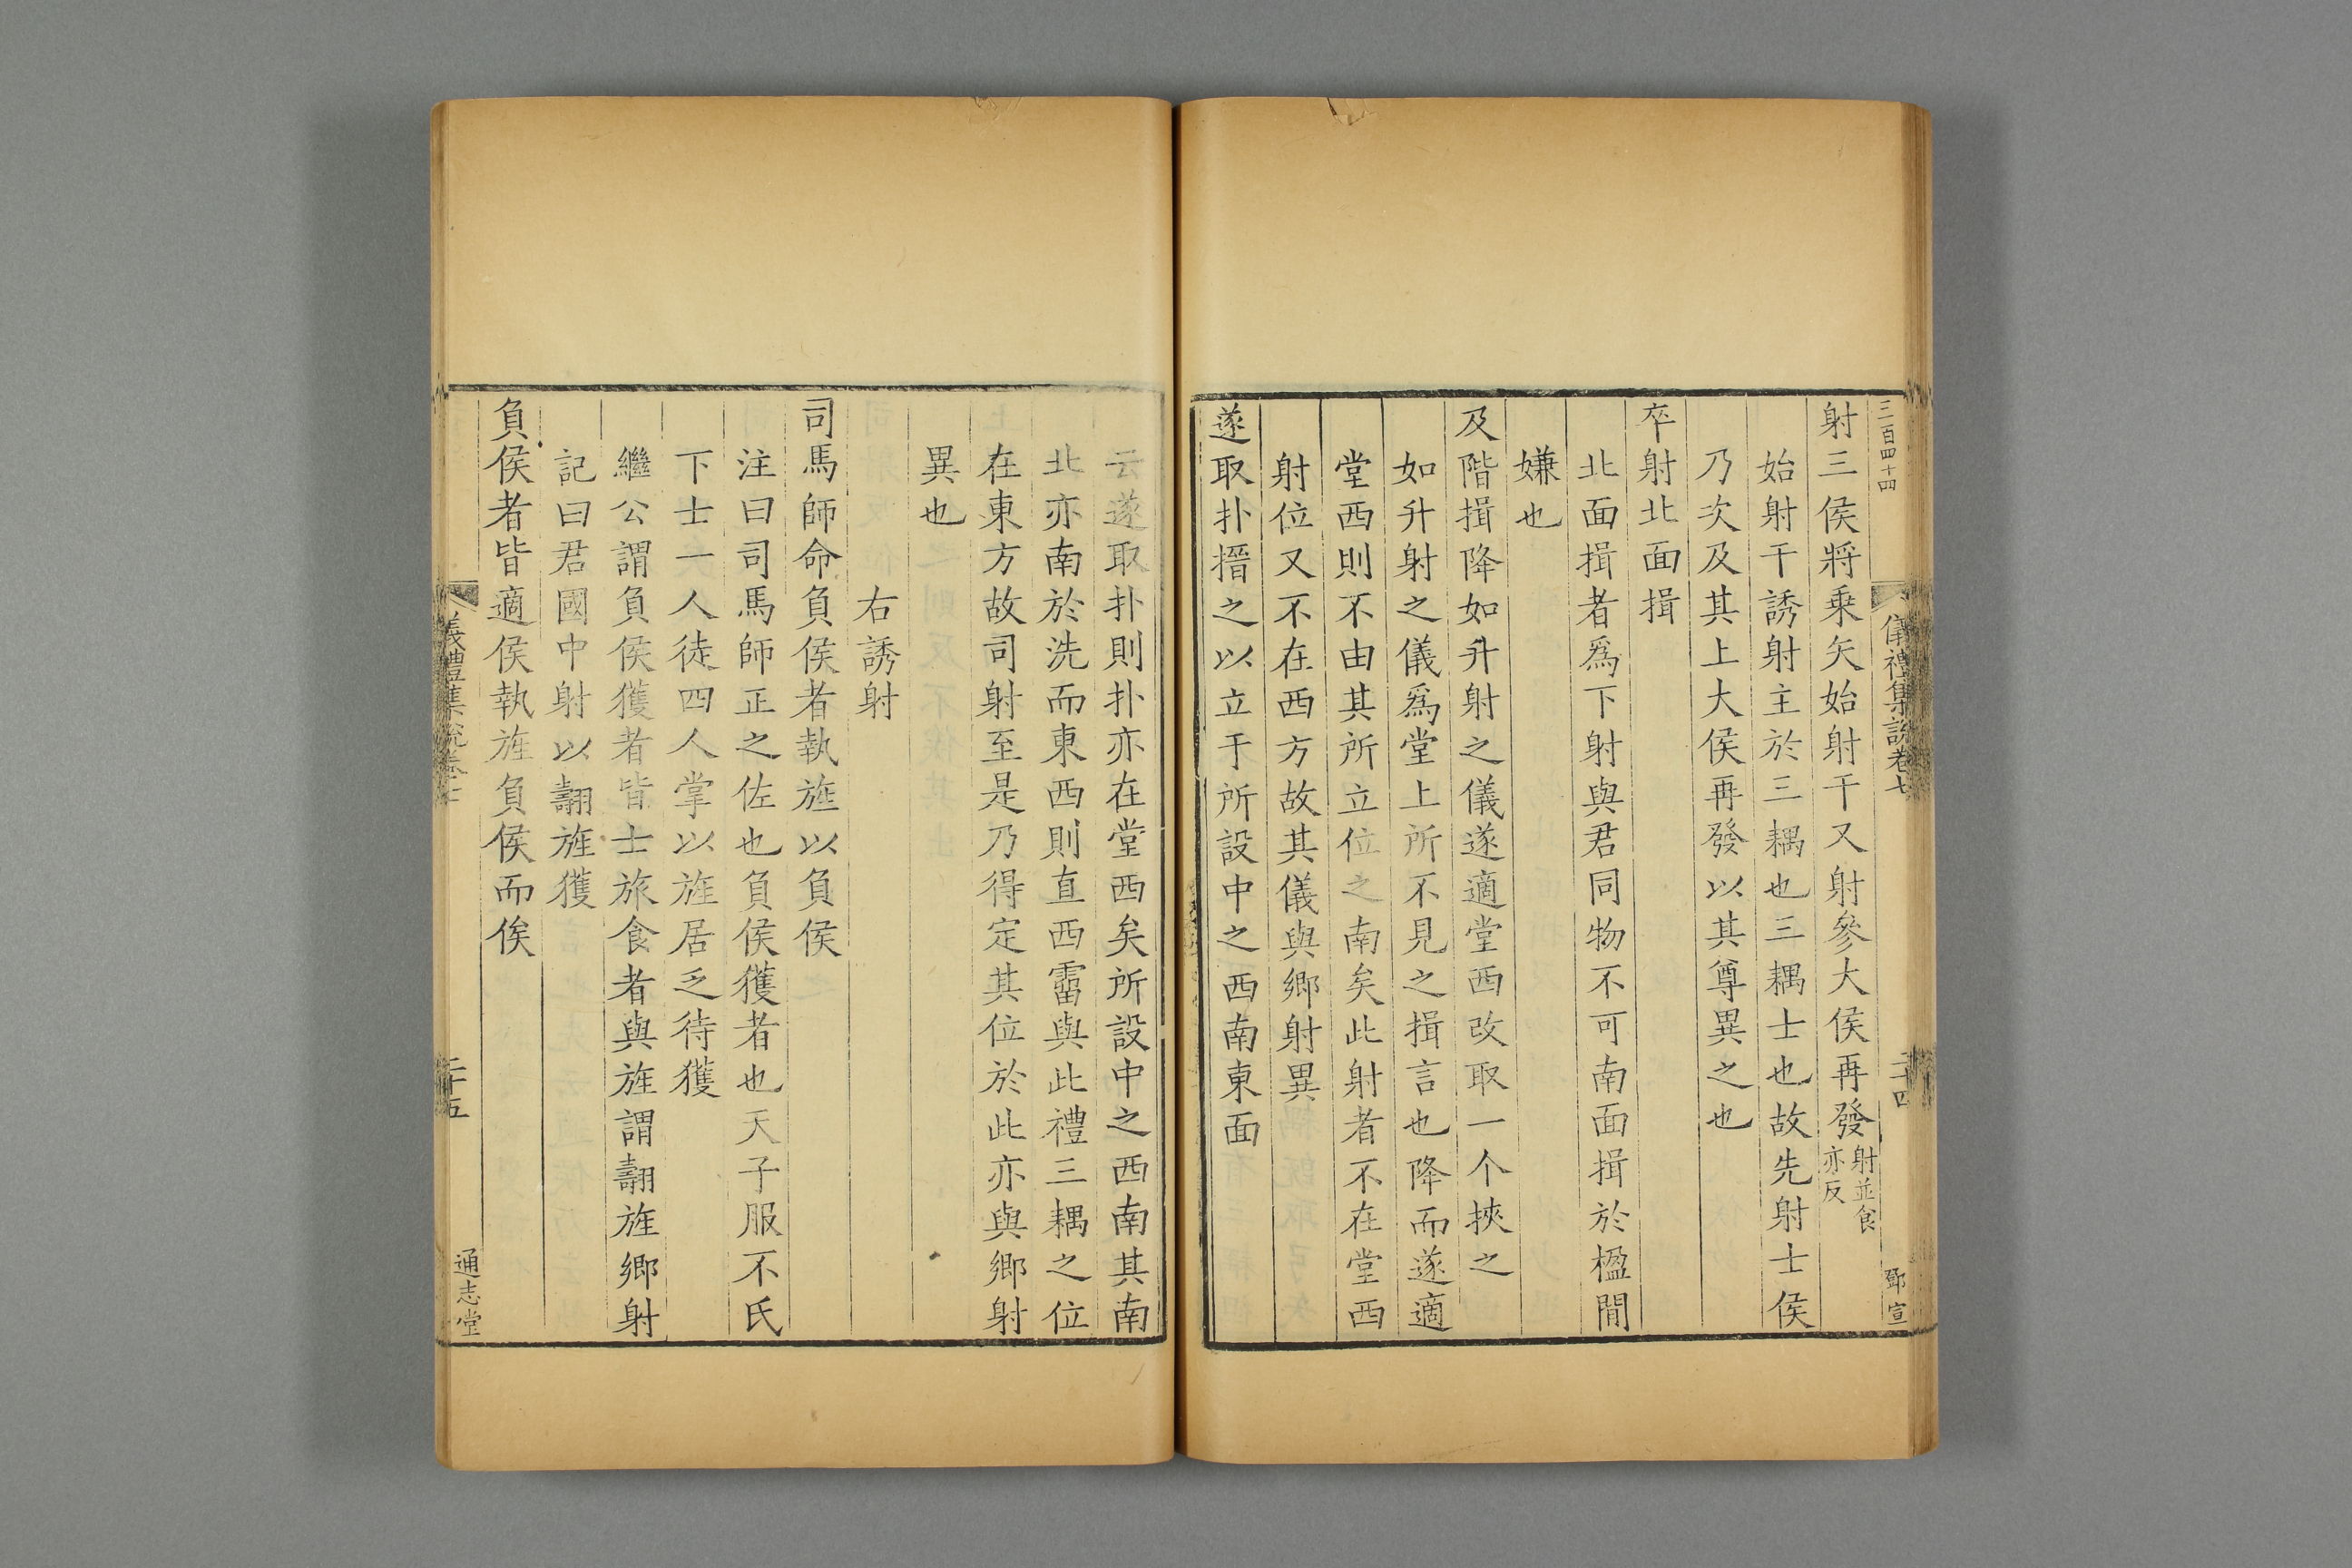 三百四十四
儀禮集說卷七
二十四
鄧宣
射三侯將乗矢始射干又射參大侯再發射並食亦反
始射干誘射主於三耦也三耦士也故先射士侯
乃次及其上大侯再發以其尊異之也
卒射北面揖
北面揖者爲下射與君同物不可南面揖於楹間
嫌也
及階揖降如升射之儀遂適堂西改取一个挾之
如升射之儀爲堂上所不見之揖言也降而遂適
堂西則不由其所立位之南矣此射者不在堂西
射位又不在西方故其儀與鄉射異
遂取扑搢之以立于所設中之西南東面
云遂取扑則扑亦在堂西矣所設中之西南其南
北亦南於洗而東西則直西霤與此禮三耦之位
在東方故司射至是乃得定其位於此亦與鄉射
異也
右誘射
司馬師命負侯者執旌以負侯
注曰司馬師正之佐也負侯獲者也天子服不氏
下士一人徒四人掌以旌居乏待獲
繼公謂負侯獲者皆士旅食者與旌謂翿旌鄉射
記曰君國中射以翿旌獲
負侯者皆適侯執旌負侯而俟
儀禮集說卷七
二十五
通志堂